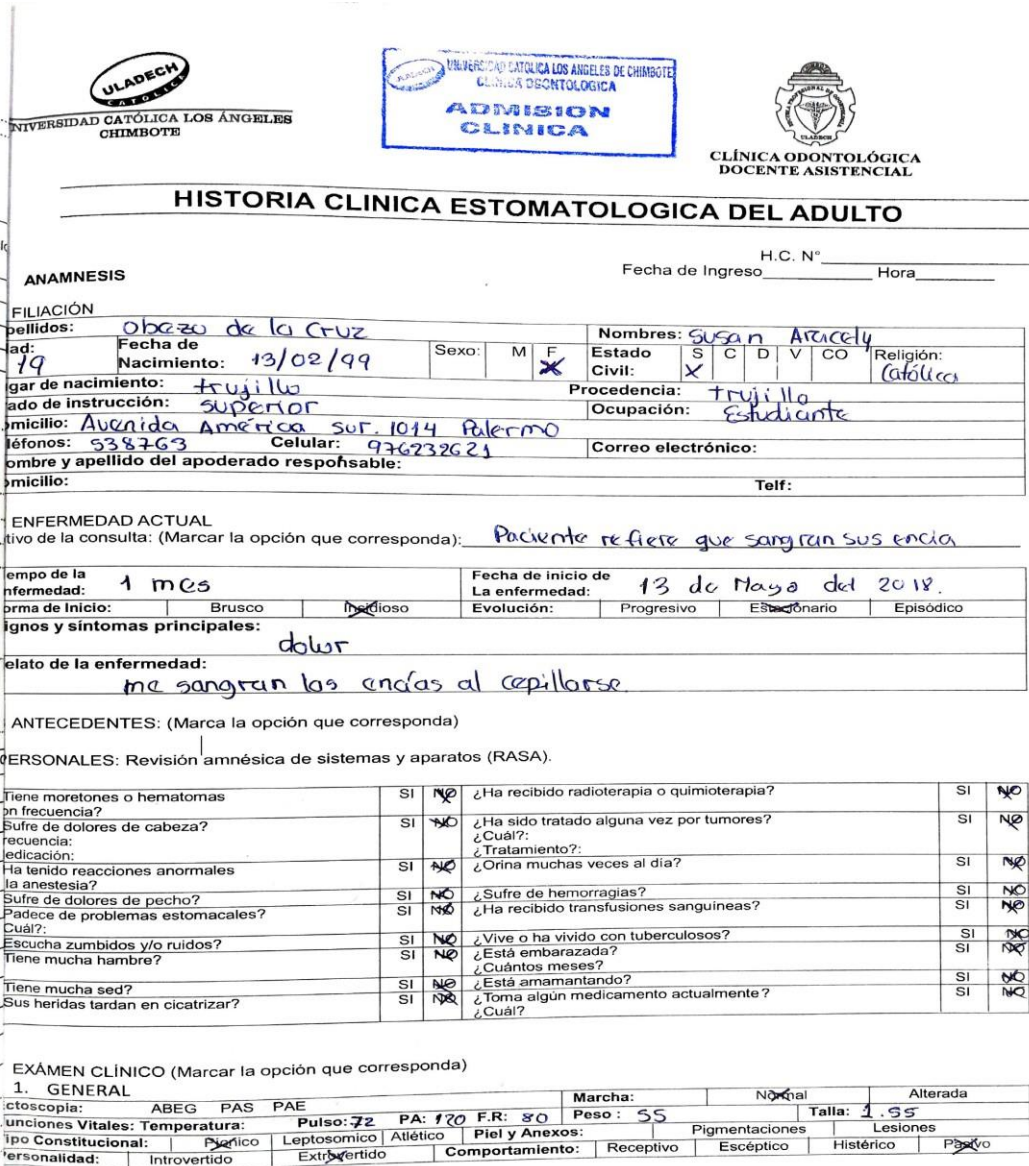 ULADECH
CATOLICA
NIVERSIDAD CATÓLICA LOS ÁNGELES
CHIMBOTE
UNIVERSIDAD CATOLICA LOS ANGELES DE CHIMBOTE
CLINICA ODONTOLOGICA
ADMISION
CLINICA
ULADECH
CLÍNICA ODONTOLÓGICA
DOCENTE ASISTENCIAL
HISTORIA CLINICA ESTOMATOLOGICA DEL ADULTO
H.C. N°
ANAMNESIS
Fecha de Ingreso Hora
FILIACIÓN
pellidos: Obazo de la Cruz Nombres: Susan Aracely
ad: 19 Fecha de Nacimiento: 13/02/99 Sexo: M F X Estado Civil: S X C D V CO Religión: Católica
gar de nacimiento: trujillo Procedencia: trujillo
ado de instrucción: superior Ocupación: Estudiante
omicilio: Avenida América sur. 1014 Palermo
léfonos: 538763 Celular: 976232621 Correo electrónico:
ombre y apellido del apoderado responsable:
omicilio: Telf:
ENFERMEDAD ACTUAL
tivo de la consulta: (Marcar la opción que corresponda): Paciente refiere que sangran sus encia
empo de la nfermedad: 1 mes Fecha de inicio de La enfermedad: 13 de Mayo del 2018.
orma de Inicio: Brusco Insidioso Evolución: Progresivo Estacionario Episódico
ignos y síntomas principales:
dolor
elato de la enfermedad:
me sangran las encías al cepillarse
ANTECEDENTES: (Marca la opción que corresponda)
ERSONALES: Revisión amnésica de sistemas y aparatos (RASA).
Tiene moretones o hematomas SI NO ¿Ha recibido radioterapia o quimioterapia? SI NO
on frecuencia?
Sufre de dolores de cabeza? SI NO ¿Ha sido tratado alguna vez por tumores? SI NO
recuencia: ¿Cuál?:
edicación: ¿Tratamiento?:
Ha tenido reacciones anormales SI NO ¿Orina muchas veces al día? SI NO
la anestesia?
Sufre de dolores de pecho? SI NO ¿Sufre de hemorragias? SI NO
Padece de problemas estomacales? SI NO ¿Ha recibido transfusiones sanguineas? SI NO
Cuál?:
Escucha zumbidos y/o ruidos? SI NO ¿Vive o ha vivido con tuberculosos? SI NO
Tiene mucha hambre? SI NO ¿Está embarazada? SI NO
¿Cuántos meses?
Tiene mucha sed? SI NO ¿Está amamantando? SI NO
Sus heridas tardan en cicatrizar? SI NO ¿Toma algún medicamento actualmente? SI NO
¿Cuál?
EXÁMEN CLÍNICO (Marcar la opción que corresponda)
1. GENERAL
ctoscopia: ABEG PAS PAE Marcha: Normal Alterada
unciones Vitales: Temperatura: Pulso: 72 PA: 120 F.R: 80 Peso: 55 Talla: 1.55
ipo Constitucional: Pycnico Leptosomico Atlético Piel y Anexos: Pigmentaciones Lesiones
ersonalidad: Introvertido Extrovertido Comportamiento: Receptivo Escéptico Histérico Pasivo